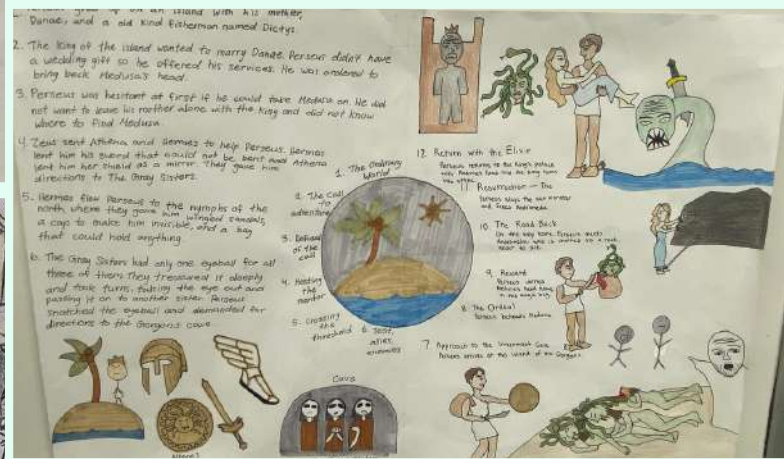 island with his mother,
Danae, and a old kind fisherman named Dictys.
2. The King of the island wanted to marry Danae. Perseus didn't have
a wedding gift so he offered his services. He was ordered to
bring back Medusa's head.
3. Perseus was hesitant at first if he could take Medusa on. He did
not want to leave his mother alone with the King and did not know
where to find Medusa.
4. Zeus sent Athena and Hermes to help Perseus. Hermes
lent him his sword that could not be bent and Athena
lent him her shield as a mirror. They gave him
directions to The Gray Sisters.
5. Hermes flew Perseus to the nymphs of the
north, where they gave him winged sandals,
a cap to make him invisible, and a bag
that could hold anything.
6. The Gray Sisters had only one eyeball for all
three of them. They treasured it deeply
and took turns, taking the eye out and
passing it on to another sister. Perseus
snatched the eyeball and demanded for
directions to the Gorgon's cave.
1. The Ordinary
World
2. The Call
to
adventure
3. Refusal
of the
call
4. Meeting
the
mentor
5. Crossing
the
threshold
6. Test,
allies,
enemies
7. Approach to the Innermost Cave
Perseus arrives at the island of the Gorgons.
8. The Ordeal
Perseus beheads Medusa
9. Reward
Perseus
Medusa's head
in the magic bag.
10. The Road Back
On the way home, Perseus meets
Andromeda who is to a rock,
11. Resurrection - The
Perseus slays the sea monster
and frees Andromeda.
12. Return with the Elixir
Perseus returns to the King's palace